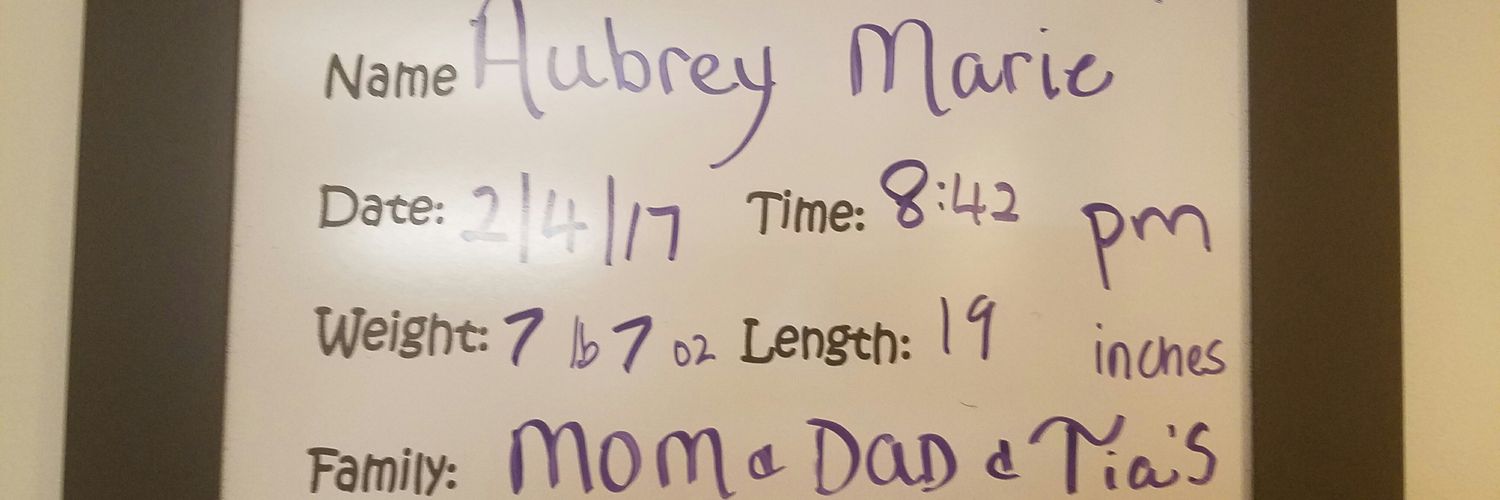 Name Aubrey Marie
Date: 2/4/17 Time: 8:42 pm
Weight: 7 lb 7 oz Length: 19 inches
Family: Mom & Dad & Tia's